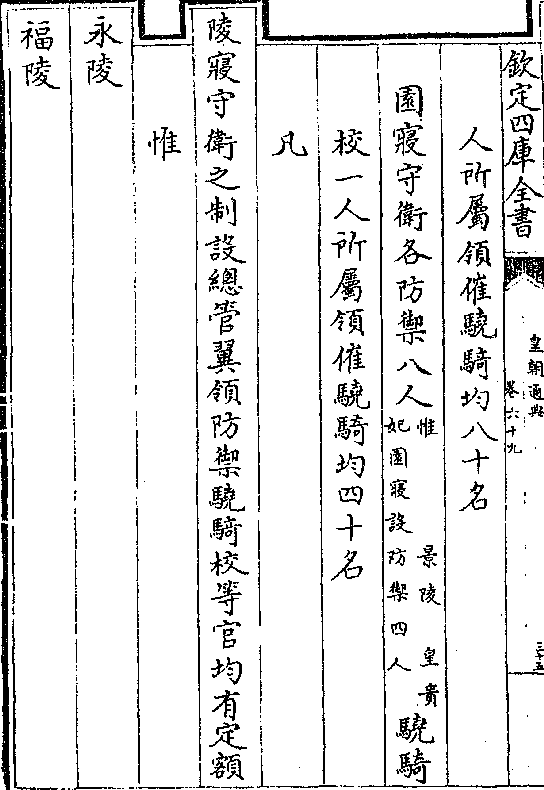 欽定四庫全書
皇朝通典
卷六十九
三十五
人所屬領催驍騎均八十名
園寢守衛各防禦八人惟 景陵 皇貴妃園寢設防禦四人驍騎
校一人所屬領催驍騎均四十名
凡
陵寢守衛之制設總管翼領防禦驍騎校等官均有定額
惟
永陵
福陵